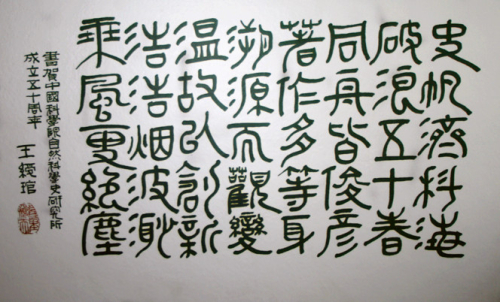 史帆濟科海
破浪五十春
同舟皆俊彦
著作多等身
溯源而觀變
温故以創新
浩浩烟波渺
乘風更絶塵
書賀中國科學院自然科學史研究所
成立五十周年
王綬琯